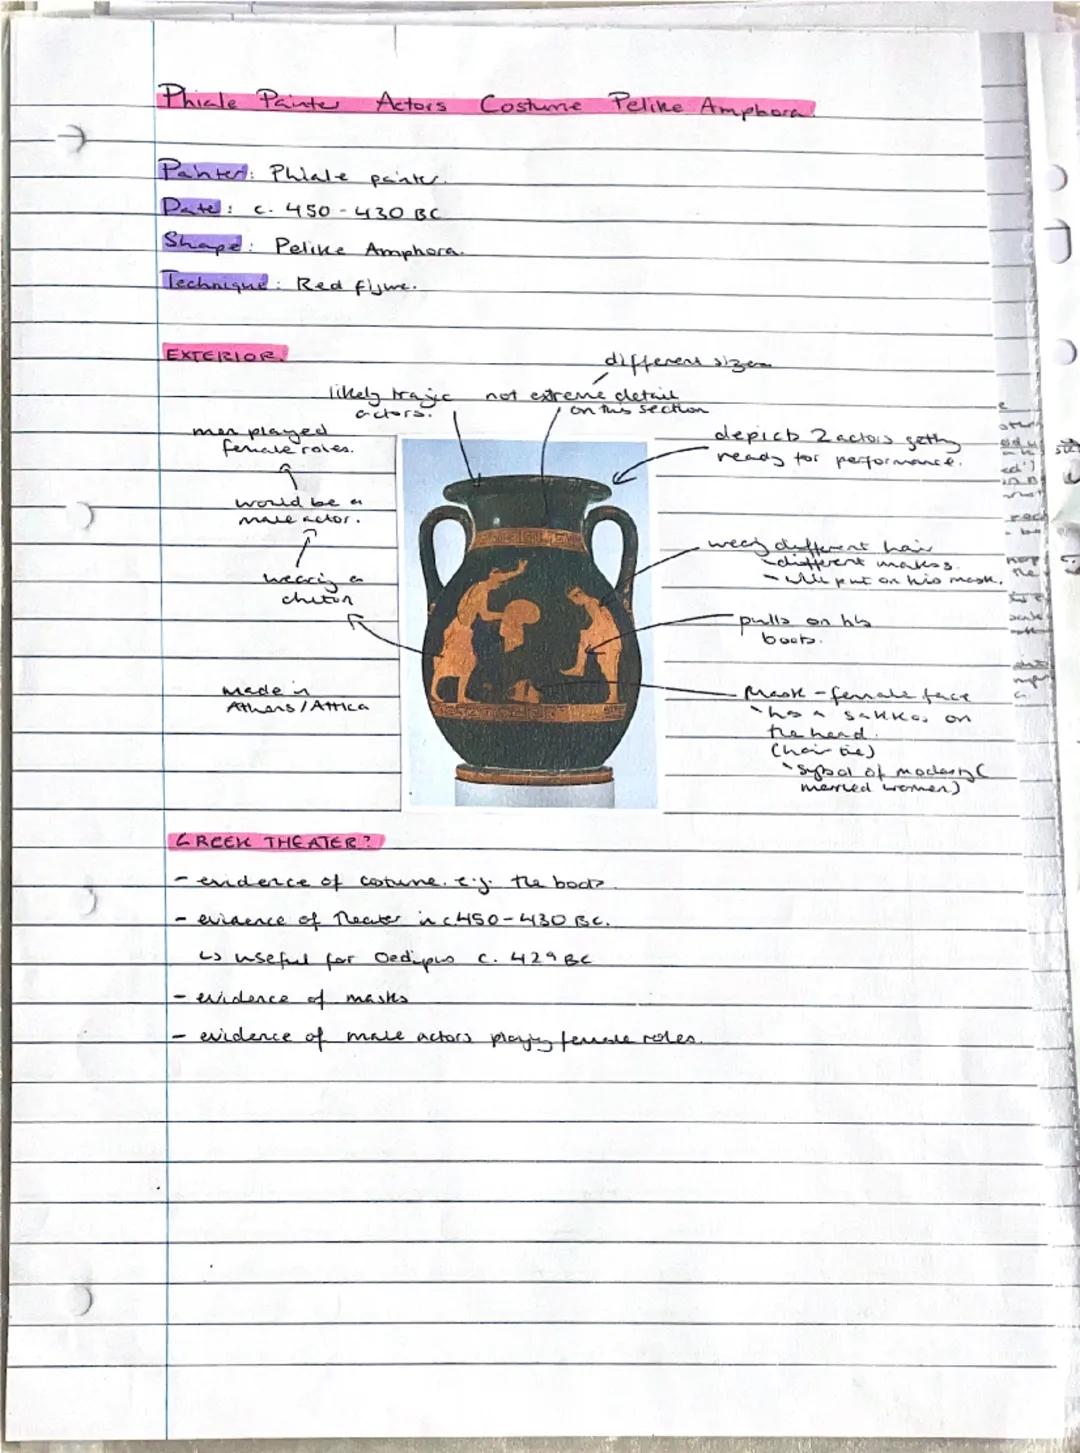 Phiale Painter Actors Costume Pelike Amphora.
Painter: Phiale painter.
Date: c. 450 - 430 BC
Shape: Pelike Amphora.
Technique: Red figure.
EXTERIOR.
different sizes
likely tragic
actors.
not extreme detail
on this section
men played
female roles.
depicts 2 actors getting
ready for performance.
would be a
male actor.
wearing a
chiton
wearing different hair
- different masks.
- will put on his mask.
pulls on his
boots.
Made in
Athens / Attica
Mask - female face
- has a sakkos on
the head.
(hair tie)
- symbol of modesty (
married women)
GREEK THEATER?
- evidence of costume. e.g. the boots.
- evidence of Theater in c.450-430 BC.
↳ useful for Oedipus c. 429 BC
- evidence of masks
- evidence of male actors playing female roles.